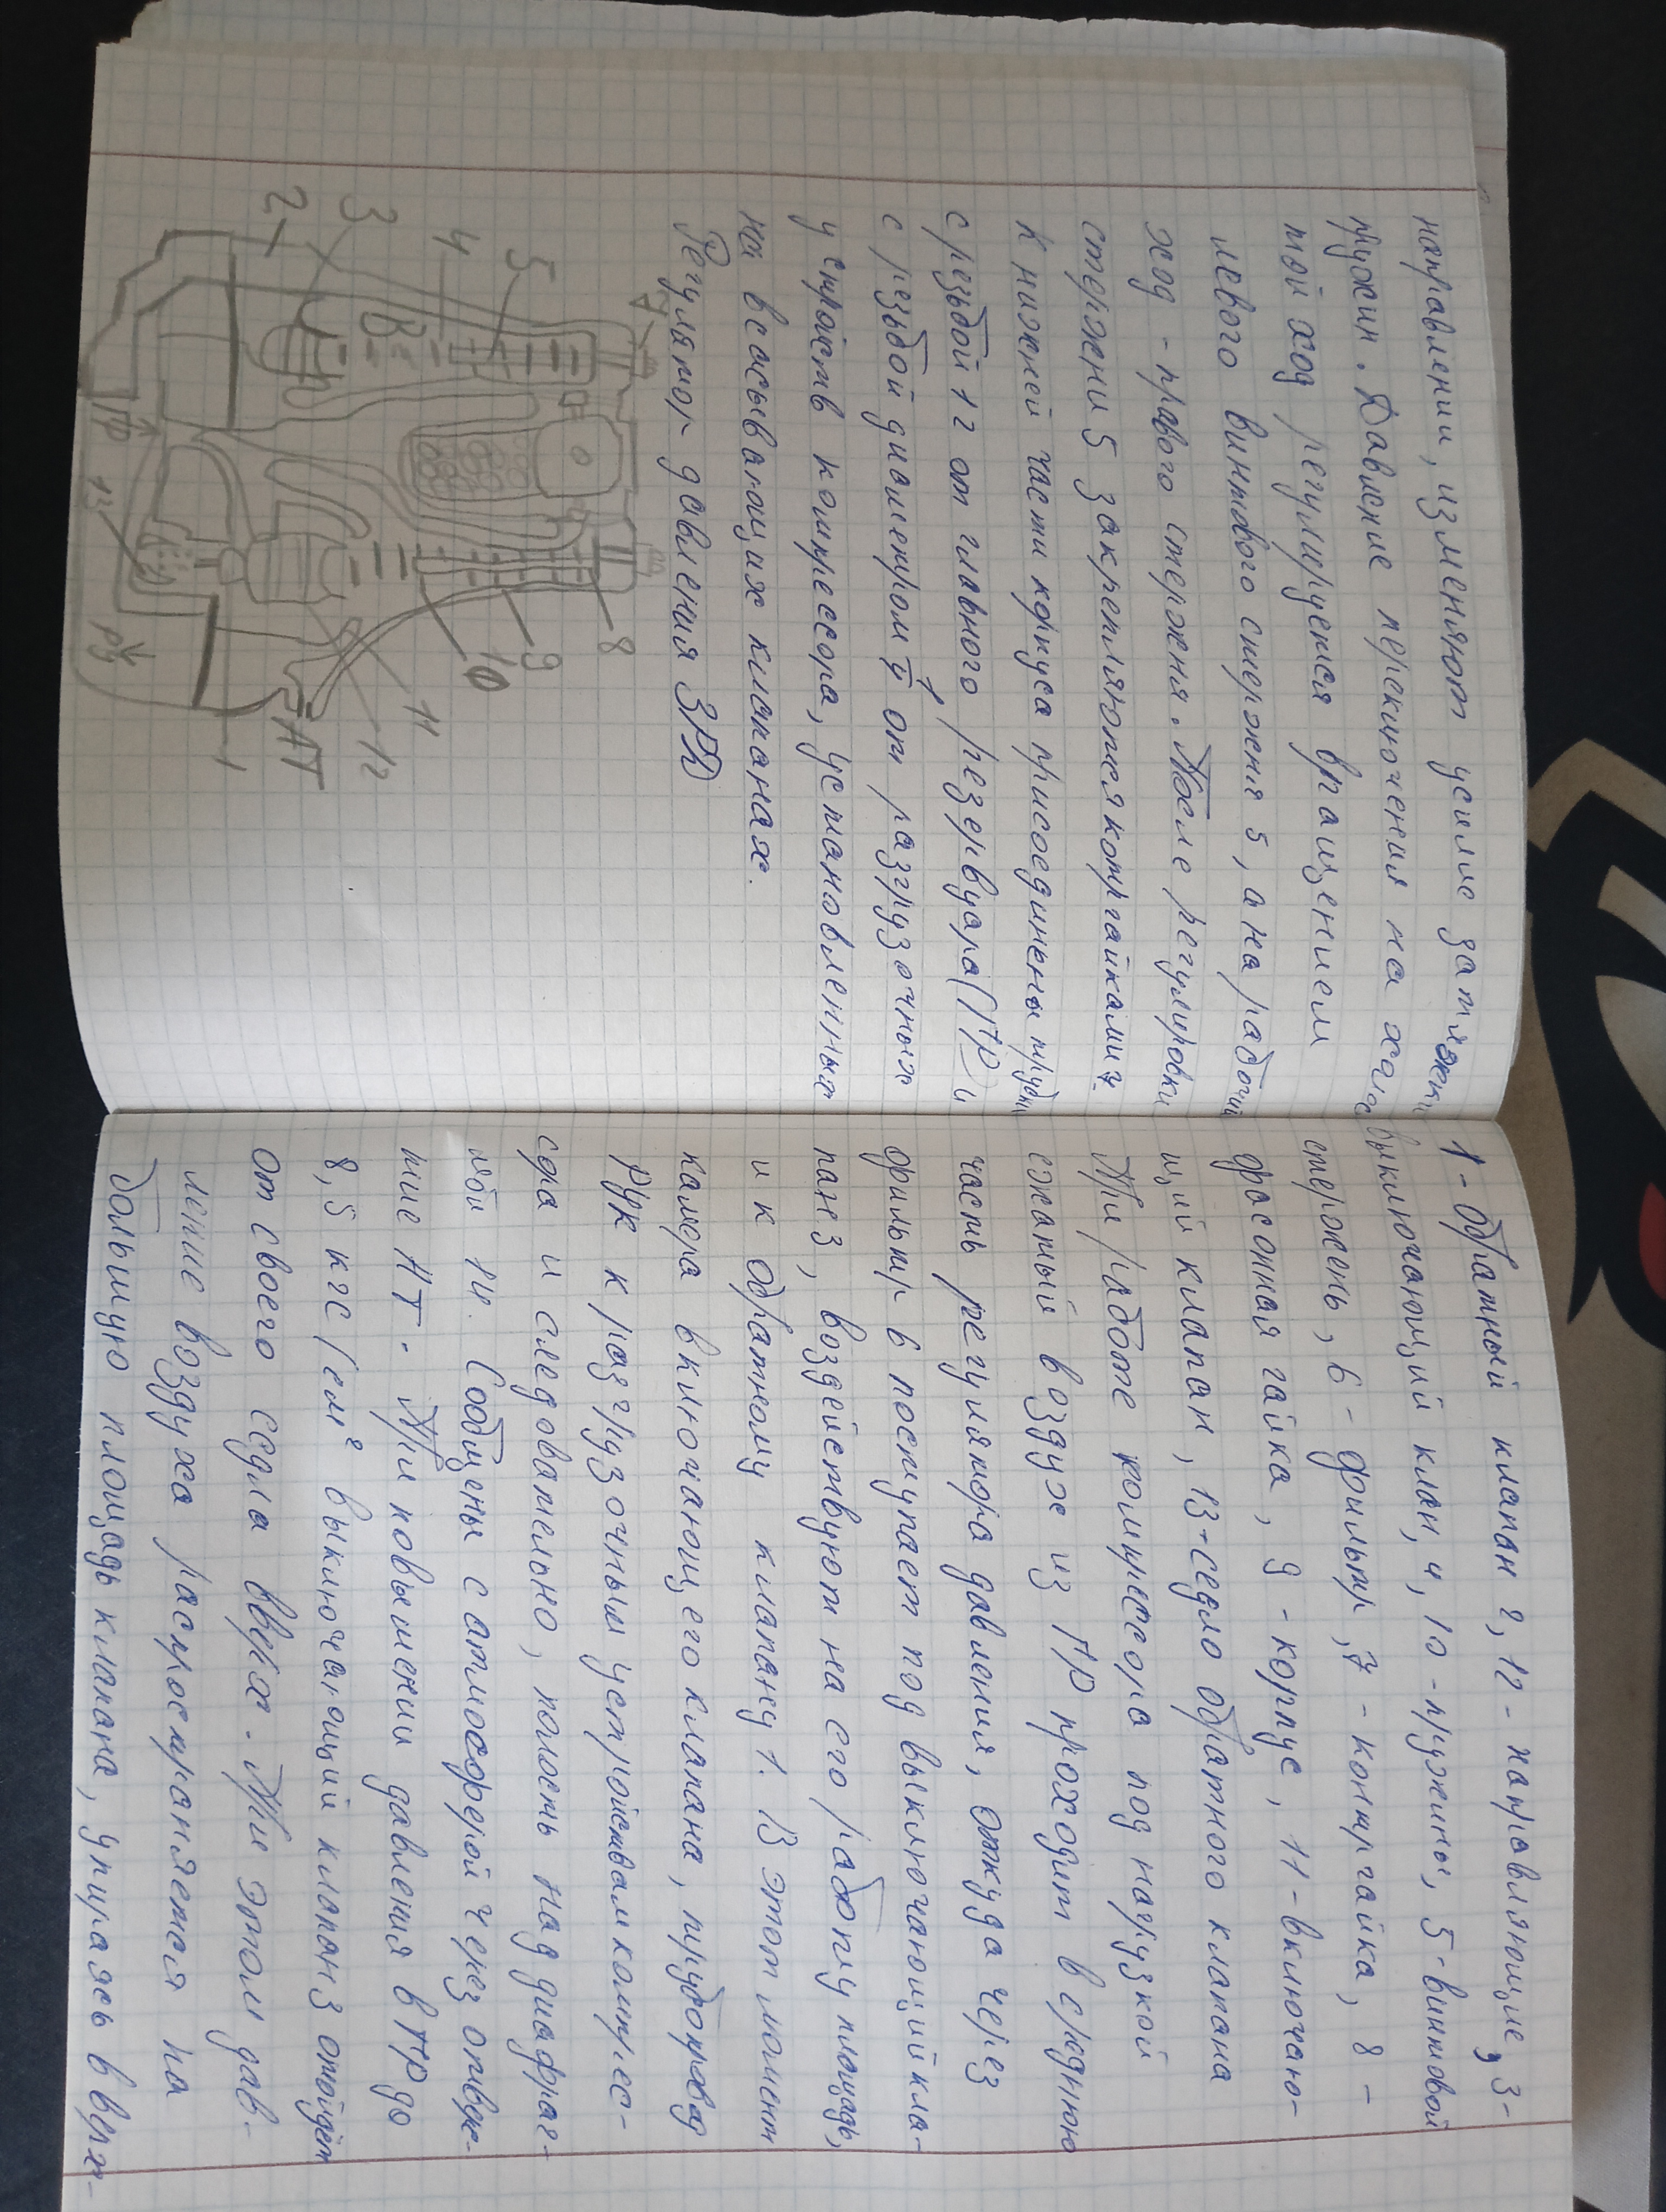 направлении, изменяют усилие затяжки
пружин. Давление переключения на холос
той ход регулируется вращением
левого винтового стержня 5, а на рабочий
ход - правого стержня. После регулировки
стержни 5 закрепляются контргайками 7.
К нижней части корпуса присоединены трубы
с резьбой 12 от главного резервуара (ГР) и
с резьбой диаметром от разгрузочных
устройств компрессора, установленных
на всасывающих клапанах.
Регулятор давления 3РД
А
2
3
4
5
В
8
9
10
11
12
АТ
1
13
ГР
1 - обратный клапан 2, 12 - направляющие, 3 -
выключающий клан, 4, 10 - пружины, 5 - винтовой
стержень, 6 - фильтр, 7 - контргайка, 8 -
фасонная гайка, 9 - корпус, 11 - включаю-
щий клапан, 13 - седло обратного клапана
При работе компрессора под нагрузкой
сжатый воздух из ГР проходит в среднюю
часть регулятора давления, откуда через
фильтр 6 поступает под выключающий кла-
пан 3, воздействуют на его рабочую площадь,
и к обратному клапану 1. В этот момент
камера включающего клапана, трубопровод
РУК к разгрузочным устройствам компрес-
сора и следовательно, полость над диафраг-
мой 14. Сообщены с атмосферой через отвер-
тие АТ. При повышении давления в ГР до
8,5 кгс/см² выключающий клапан 3 отойдёт
от своего седла вверх. При этом дав-
ление воздуха распространяется на
большую площадь клапана, упираясь в врх-